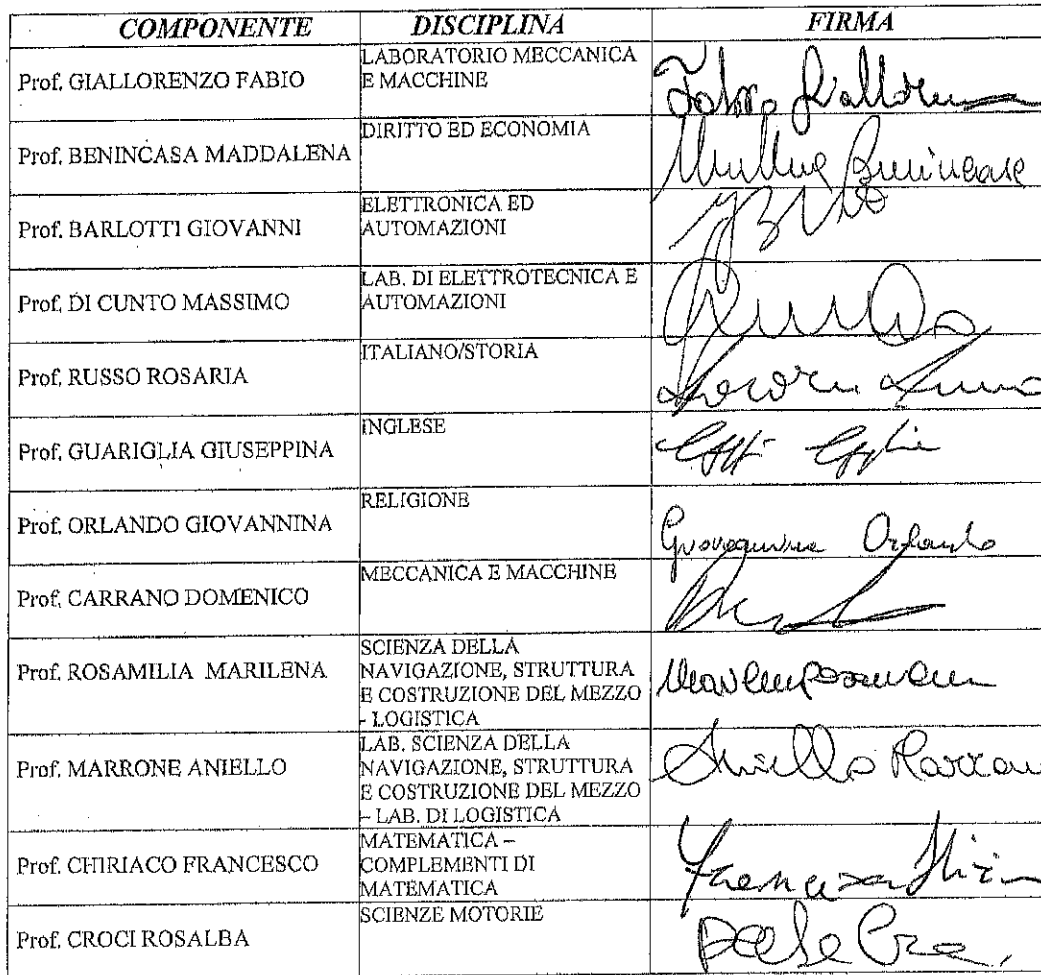 COMPONENTE DISCIPLINA FIRMA
Prof. GIALLORENZO FABIO
LABORATORIO MECCANICA
E MACCHINE
Prof. BENINCASA MADDALENA
DIRITTO ED ECONOMIA
Benincasa
Prof. BARLOTTI GIOVANNI
ELETTRONICA ED
AUTOMAZIONI
Prof. DI CUNTO MASSIMO
LAB. DI ELETTROTECNICA E
AUTOMAZIONI
Prof. RUSSO ROSARIA
ITALIANO/STORIA
Prof. GUARIGLIA GIUSEPPINA
INGLESE
Prof. ORLANDO GIOVANNINA
RELIGIONE
Giovannina Orlando
Prof. CARRANO DOMENICO
MECCANICA E MACCHINE
Prof. ROSAMILIA MARILENA
SCIENZA DELLA
NAVIGAZIONE, STRUTTURA
E COSTRUZIONE DEL MEZZO
- LOGISTICA
Prof. MARRONE ANIELLO
LAB. SCIENZA DELLA
NAVIGAZIONE, STRUTTURA
E COSTRUZIONE DEL MEZZO
– LAB. DI LOGISTICA
Aniello
Prof. CHIRIACO FRANCESCO
MATEMATICA –
COMPLEMENTI DI
MATEMATICA
Prof. CROCI ROSALBA
SCIENZE MOTORIE